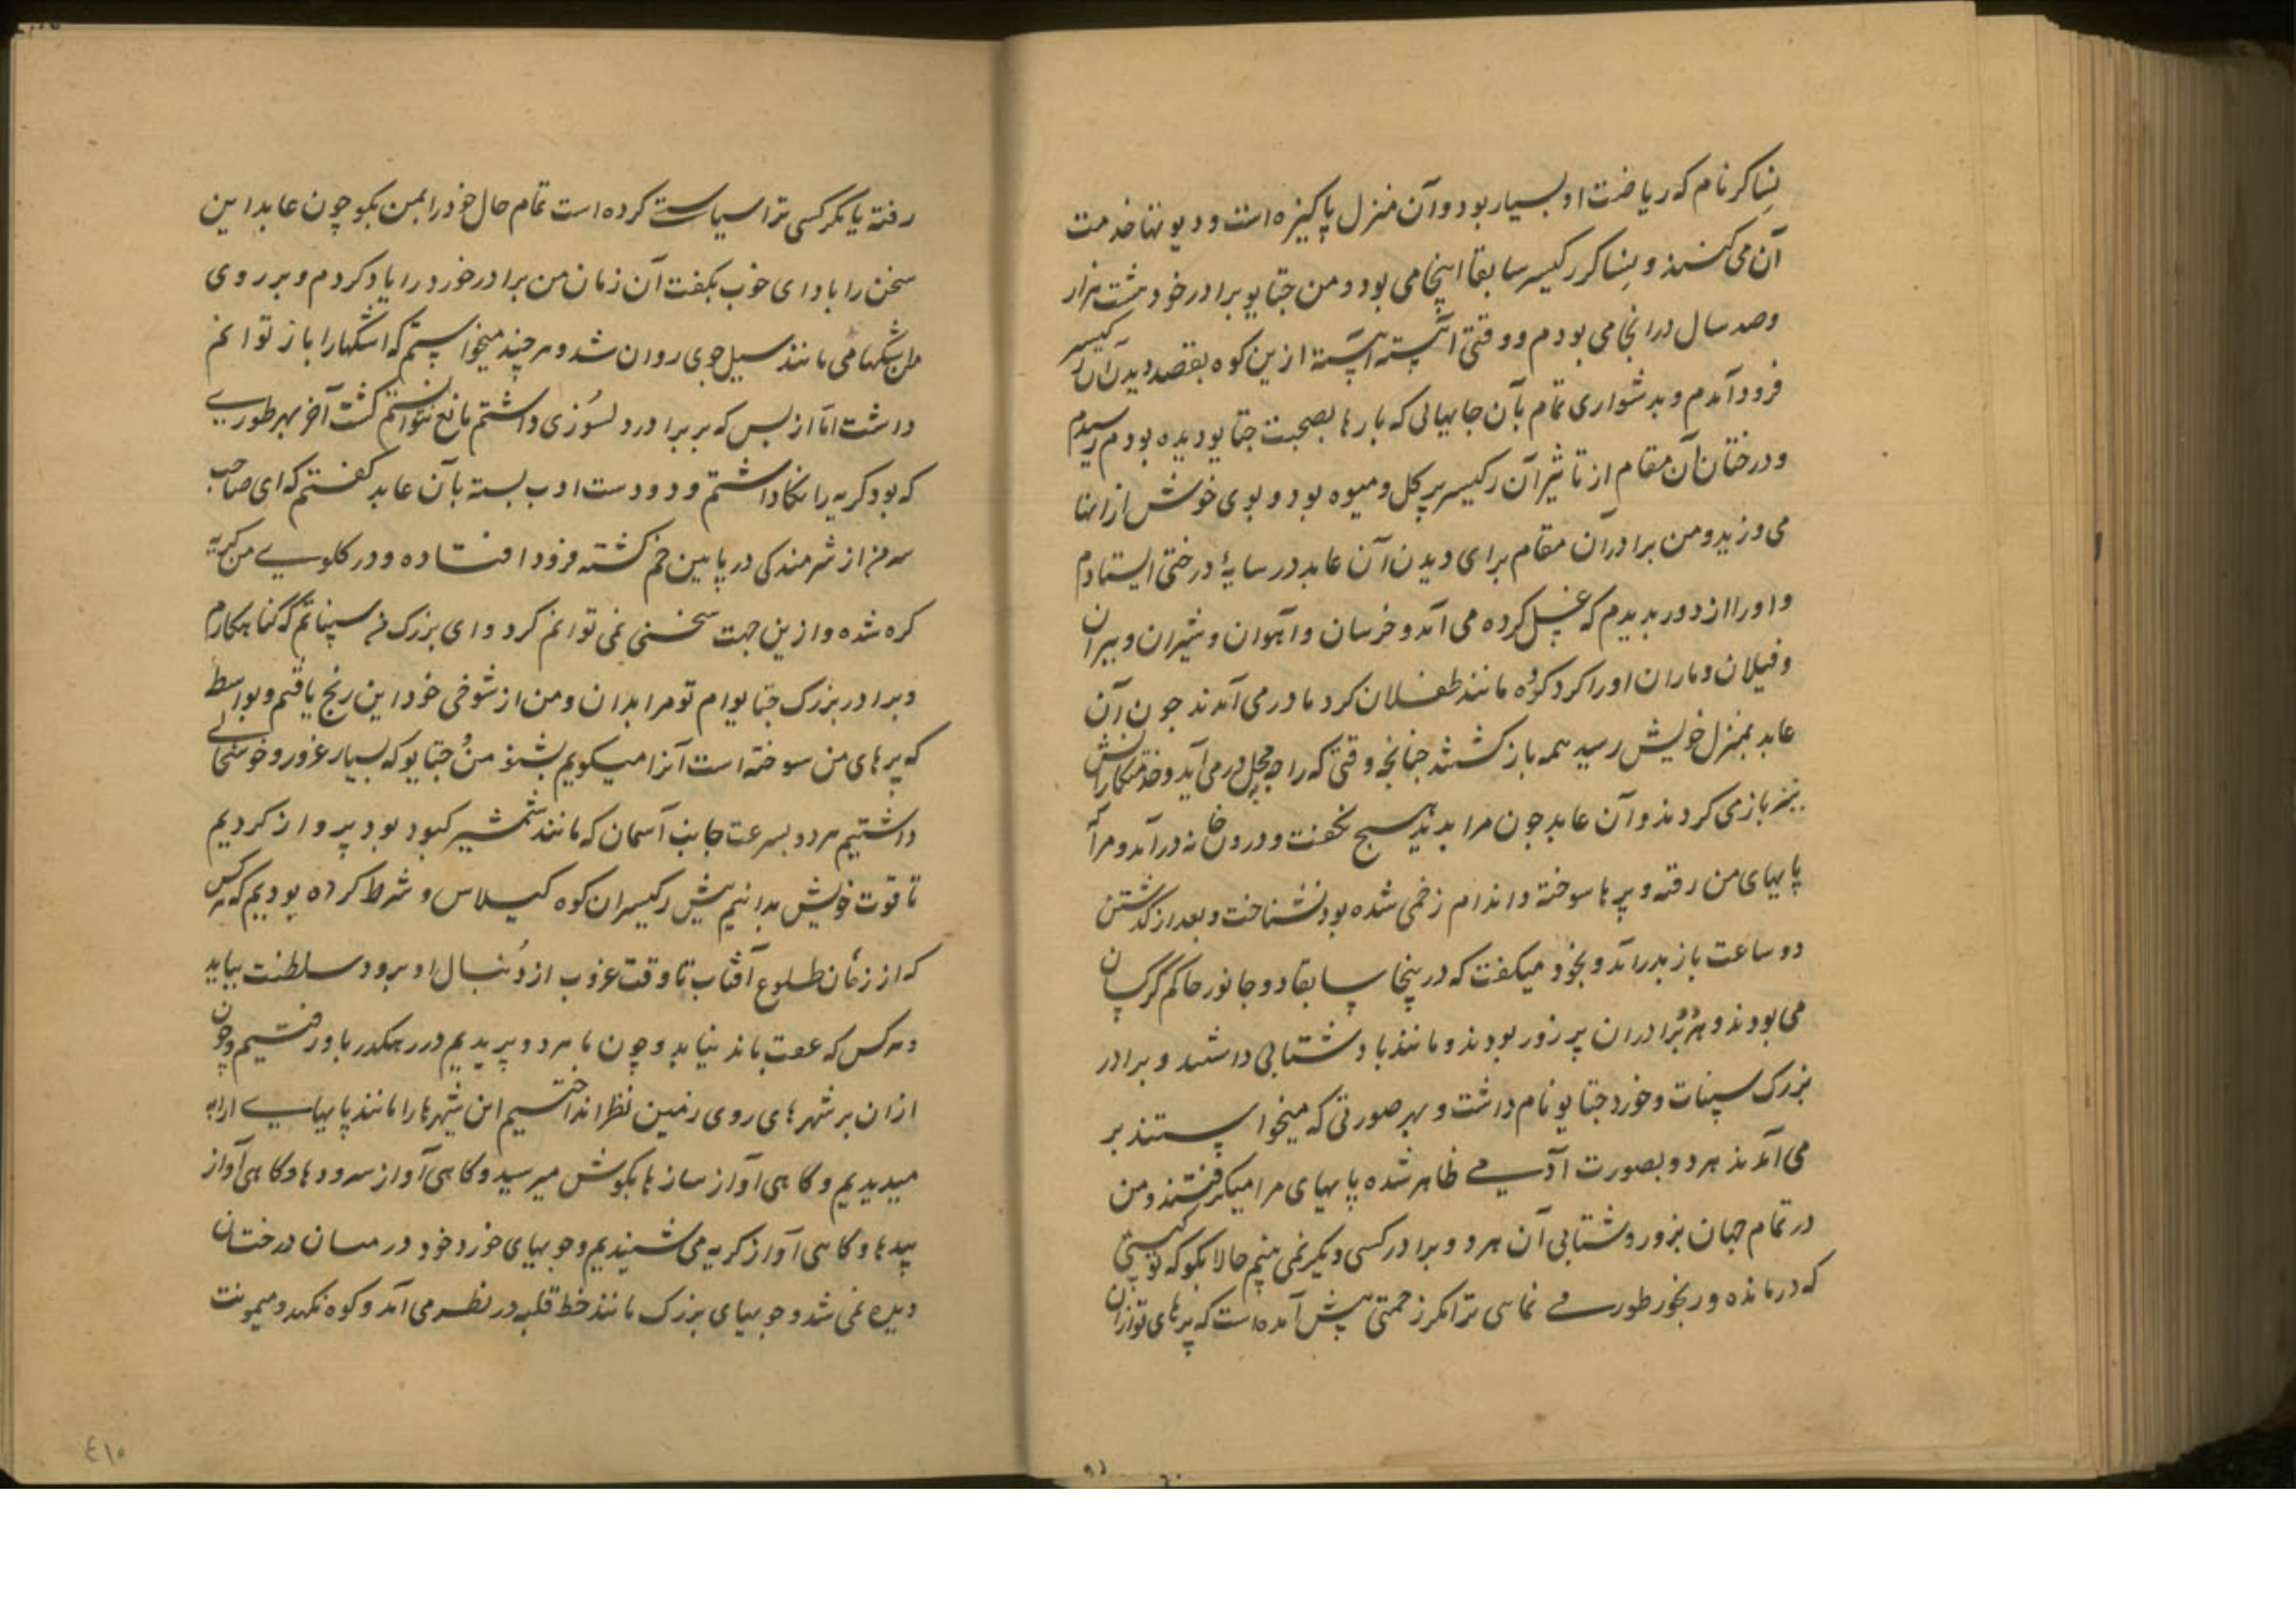 نساکر نام که ریاضت او بسیار بود و آن منزل پاکیزه است و دیوتها خدمت
آن می کنند و نساکر رکیسر سابقا اینجا می بود و من جتایو برادر خود هشت هزار
و صد سال در انجا می بودم و وقتی آهسته آهسته ازین کوه بقصد دیدن آن رکیسر
فرود آمدم و بدشواری تمام بآن جایهائی که بارها بصحبت جتایو دیده بودم رسیدم
و درختان آن مقام از تاثیر آن رکیسر پر گل و میوه بود و بوی خوش از انها
می وزید و من برادران مقام برای دیدن آن عابد در سایهٔ درختی ایستادم
و او را از دور بدیدم که غسل کرده می آمد و خرسان و آهوان و شیران و ببران
و فیلان و ماران او را گرد کرده مانند طفلان گرد مادر می آمدند چون آن
عابد بمنزل خویش رسید همه باز گشتند چنانچه وقتی که راجه بمحل در می آید و خدمتگارانش
نیز بازمی گردند و آن عابد چون مرا بدید هیچ نگفت و درون خانه در آمد و مرا که
پایهای من رفته و پرها سوخته و اندام زخمی شده بود نشناخت و بعد از گذشتن
دو ساعت باز بدر آمد و بخود میگفت که در پنجا سابقا دو جانور حاکم کرکسان
می بودند و هر دو برادران پر زور بودند و مانند باد شتابی داشتند و برادر
بزرک سپنات و خورد جتایو نام داشت و بهر صورتی که میخواستند بر
می آمدند هر دو بصورت آدمی ظاهر شده پایهای مرا میگرفتند و من
در تمام جهان بزور و شتابی آن هر دو برادر کسی دیگر نمی بینم حالا بگو که تو کیستی
که درمانده و رنجور طوری نمائی ترا مگر زحمتی پیش آمده است که پرهای تو ازان
رفته یا مگر کسی ترا سیاست کرده است تمام حال خود را بمن بگو چون عابد این
سخن را با دای خوب بگفت آن زمان من برادر خورد را یاد کردم و بر روی
من اشکها می مانند سیل جوی روان شد و هر چند میخواستم که اشکها را باز توانم
داشت اما از بس که بر برادر دلسوزی داشتم مانع نتوانستم گشت آخر بهر طوری
که بود گریه را نگاه داشتم و دو دست ادب بسته بآن عابد گفتم که ای صاحب
سر من از شرمندگی در پایین خم گشته فرود افتاده و در گلوی من گریه
گره شده و ازین جهت سخنی نمی توانم کرد و ای بزرک من سپناتم که گناهکارم
و برادر بزرک جتایوام تو مرا بدان و من از شوخی خود این رنج یافتم و بواسطه
که پرهای من سوخته است آنرا میگویم بشنو من و جتایو که بسیار غرور و خوشحالی
داشتیم هر دو بسرعت جانب آسمان که مانند شمشیر کبود بود پرواز کردیم
تا قوت خویش بدانیم پیش رکیسران کوه کیلاس و شرط کرده بودیم که هر کس
که از زمان طلوع آفتاب تا وقت غروب از دنبال او برود سلطنت بیابد
و هر کس که عقب ماند نیابد و چون ما هر دو پریدیم در رهگذر باد رفتیم و چون
ازان بر شهرهای روی زمین نظر انداختیم این شهرها را مانند پایهای ارابه
میدیدیم و گاهی آواز سازها بگوش میرسید و گاهی آواز سرودها و گاهی آواز
بیدها و گاهی آواز گریه می شنیدیم و جویهای خورد خود در میان درختان
دیده نمی شد و جویهای بزرک مانند خط قلبه در نظر می آمد و کوه نکهد و میمونت
٤١٥